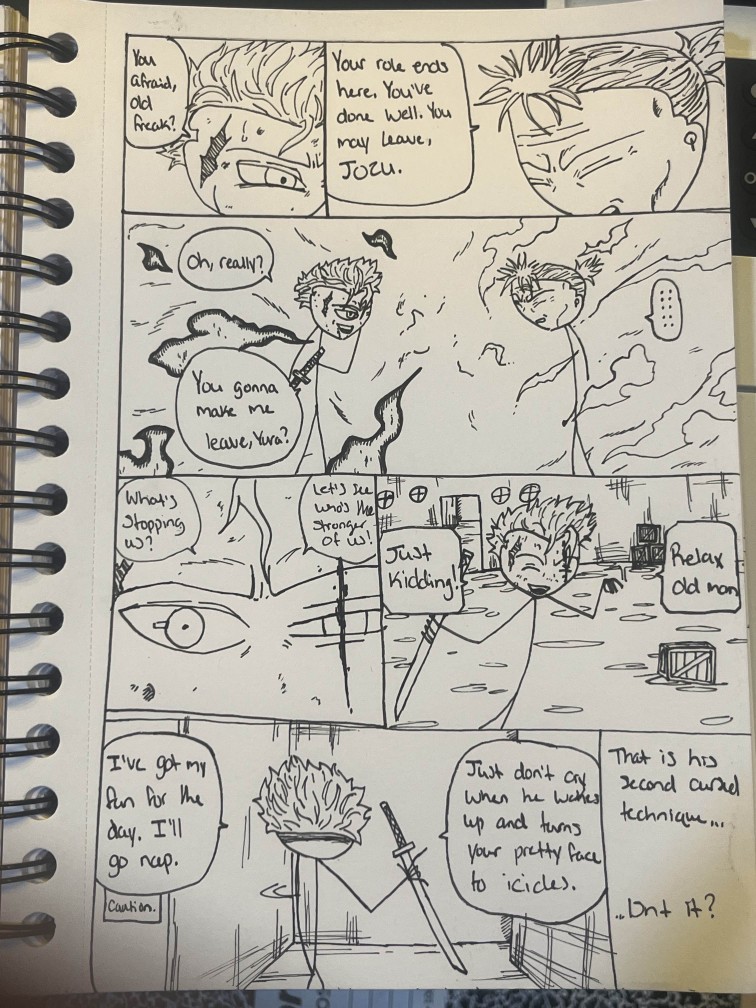 You
afraid,
old
freak?
Your role ends
here. You've
done well. You
may leave,
Jozu.
Oh, really?
You gonna
make me
leave, Yura?
What's
stopping
us?
Let's see
who's the
stronger
of us!
Just
kidding!
Relax
old man
I've got my
fun for the
day. I'll
go nap.
Caution.
Just don't cry
when he wakes
up and turns
your pretty face
to icicles.
That is his
second cursed
technique...
...Isnt it?